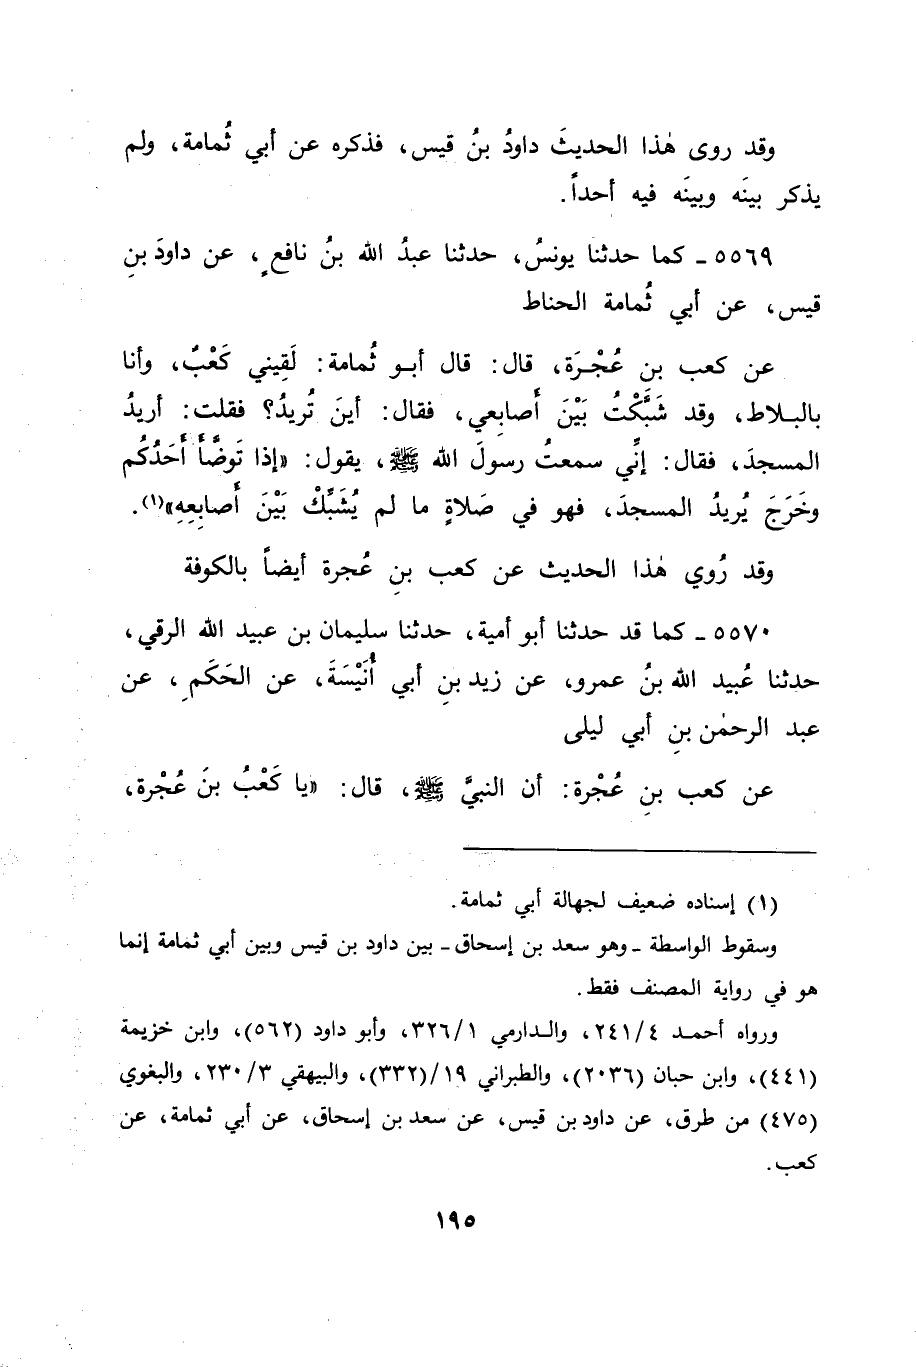 وقد روى هٰذا الحديثَ داودُ بنُ قيس، فذكره عن أبي ثُمامة، ولم
يذكر بينَه وبينَه فيه أحداً.
٥٥٦٩ ـ كما حدثنا يونسُ، حدثنا عبدُ الله بنُ نافعٍ، عن داودَ بنِ
قيس، عن أبي ثُمامة الحناط
عن كعب بنِ عُجْرَة، قال: قال أبو ثُمامة: لَقِيني كَعْبٌ، وأنا
بالبلاط، وقد شَبَّكْتُ بَيْنَ أَصابِعي، فقال: أينَ تُريدُ؟ فقلت: أريدُ
المسجدَ، فقال: إنِّي سمعتُ رسولَ الله ﷺ، يقول: «إذا تَوضَّأَ أَحَدُكُم
وخَرَجَ يُريدُ المسجدَ، فهو في صَلاةٍ ما لم يُشَبِّكْ بَيْنَ أَصابِعِهِ»(١).
وقد رُوي هٰذا الحديث عن كعب بنِ عُجرة أيضاً بالكوفة
٥٥٧٠ ـ كما قد حدثنا أبو أمية، حدثنا سليمان بن عبيد الله الرقي،
حدثنا عُبيد الله بنُ عمرو، عن زيد بنِ أبي أُنَيْسَةَ، عن الحَكَمِ، عن
عبد الرحمٰن بنِ أبي ليلى
عن كعب بنِ عُجْرة: أن النبيَّ ﷺ، قال: «يا كَعْبُ بنَ عُجْرة،
(١) إسناده ضعيف لجهالة أبي ثمامة.
وسقوط الواسطة ـ وهو سعد بن إسحاق ـ بين داود بن قيس وبين أبي ثمامة إنما
هو في رواية المصنف فقط.
ورواه أحمد ٢٤١/٤، والدارمي ٣٢٦/١، وأبو داود (٥٦٢)، وابن خزيمة
(٤٤١)، وابن حبان (٢٠٣٦)، والطبراني ١٩/(٣٣٢)، والبيهقي ٢٣٠/٣، والبغوي
(٤٧٥) من طرق، عن داود بن قيس، عن سعد بن إسحاق، عن أبي ثمامة، عن
كعب.
١٩٥